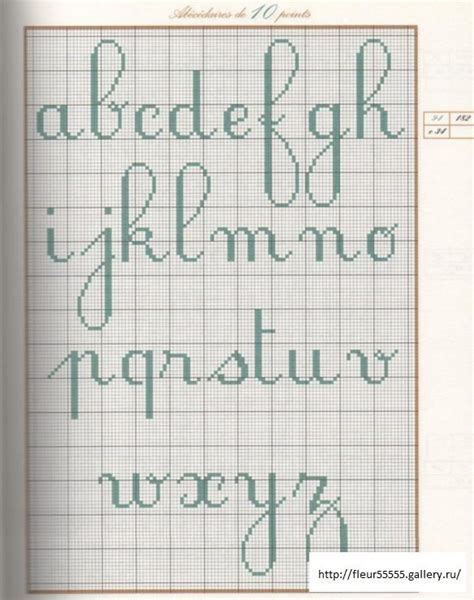 Abécédaires de 10 points
abcdefgh
91 182
+ 31
ijklmno
pqrstuv
wxyz
http://fleur55555.gallery.ru/